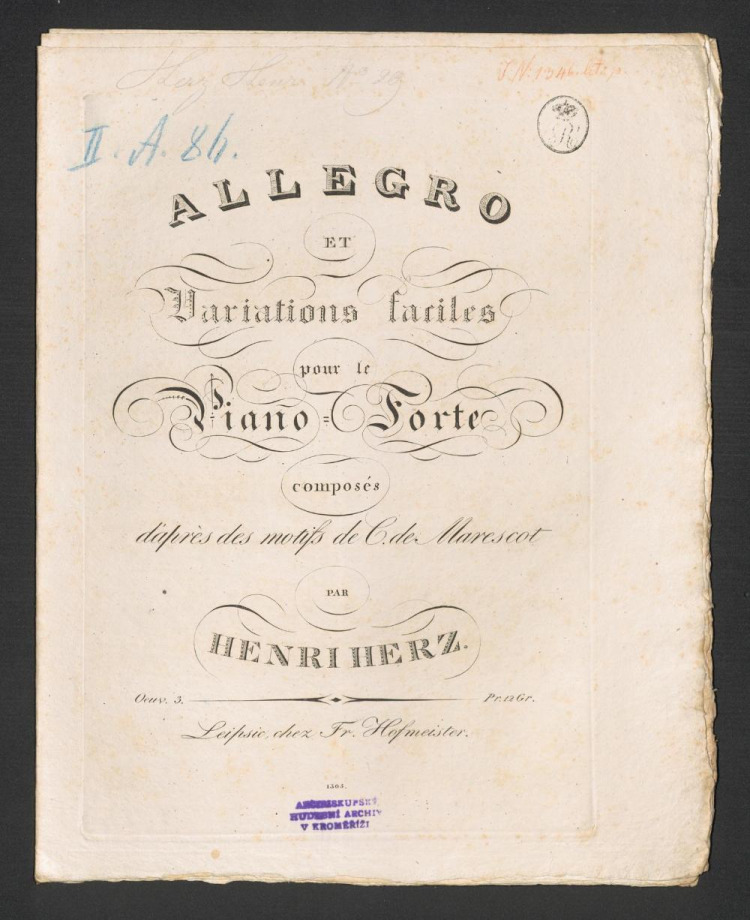 Herz Henri No
II. A. 86.
ALLEGRO
ET
Variations faciles
pour le
Piano=Forte
composés
d'après des motifs de C. de Marescot
PAR
HENRI HERZ.
Oeuv. 3. Pr. 12 Gr.
Leipsic, chez Fr. Hofmeister.
1303.
ARCIBISKUPSKÝ
HUDEBNÍ ARCHIV
V KROMĚŘÍŽI